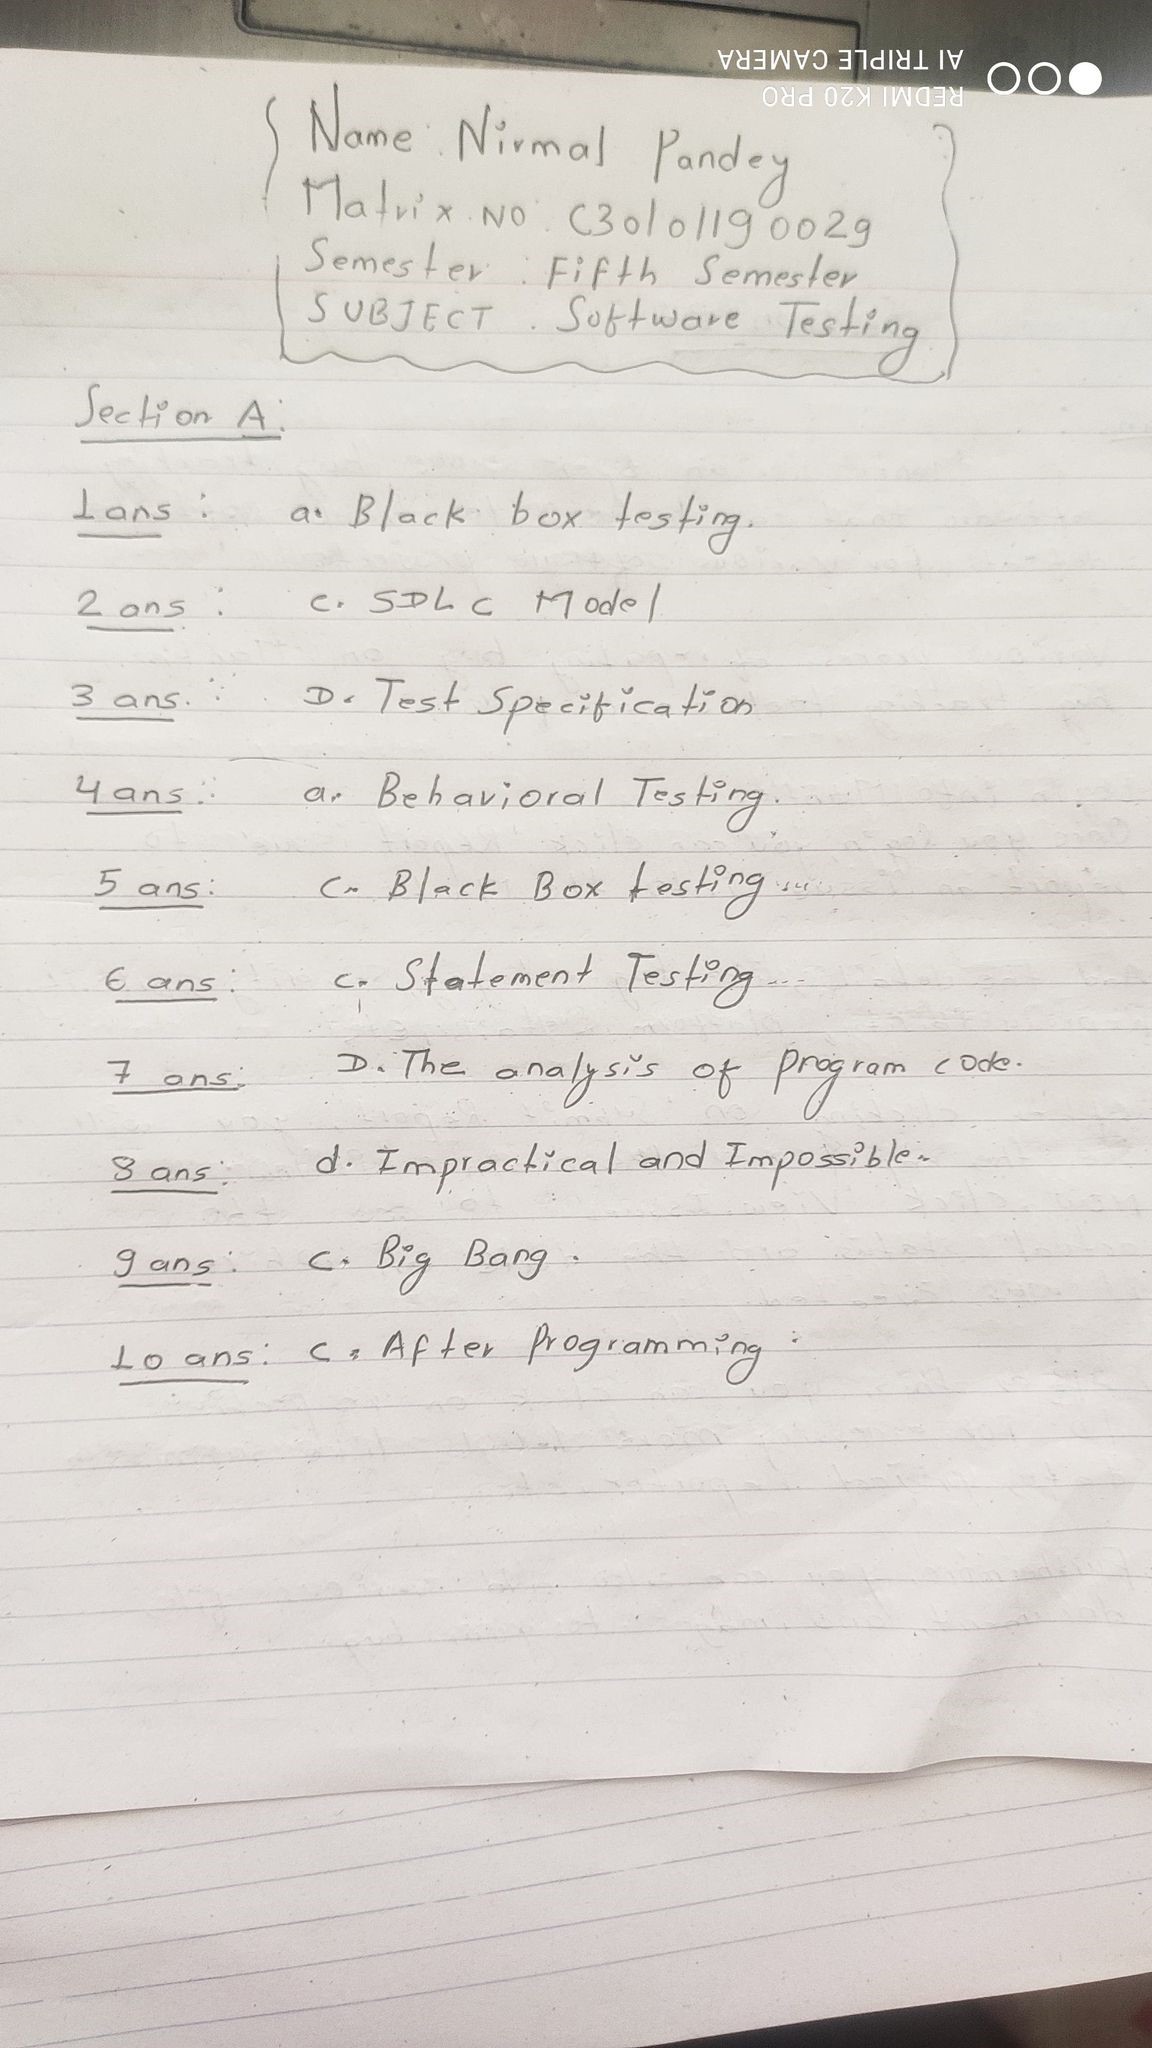 REDMI K20 PRO
AI TRIPLE CAMERA
Name : Nirmal Pandey
Matrix NO : C30101190029
Semester : Fifth Semester
SUBJECT : Software Testing
Section A:
1 ans : a. Black box testing.
2 ans : c. SDLC Model
3 ans. : D. Test Specification
4 ans : a. Behavioral Testing.
5 ans : C. Black Box testing...
6 ans : c. Statement Testing...
7 ans : D. The analysis of program code.
8 ans : d. Impractical and Impossible.
9 ans : C. Big Bang.
10 ans : C. After Programming :